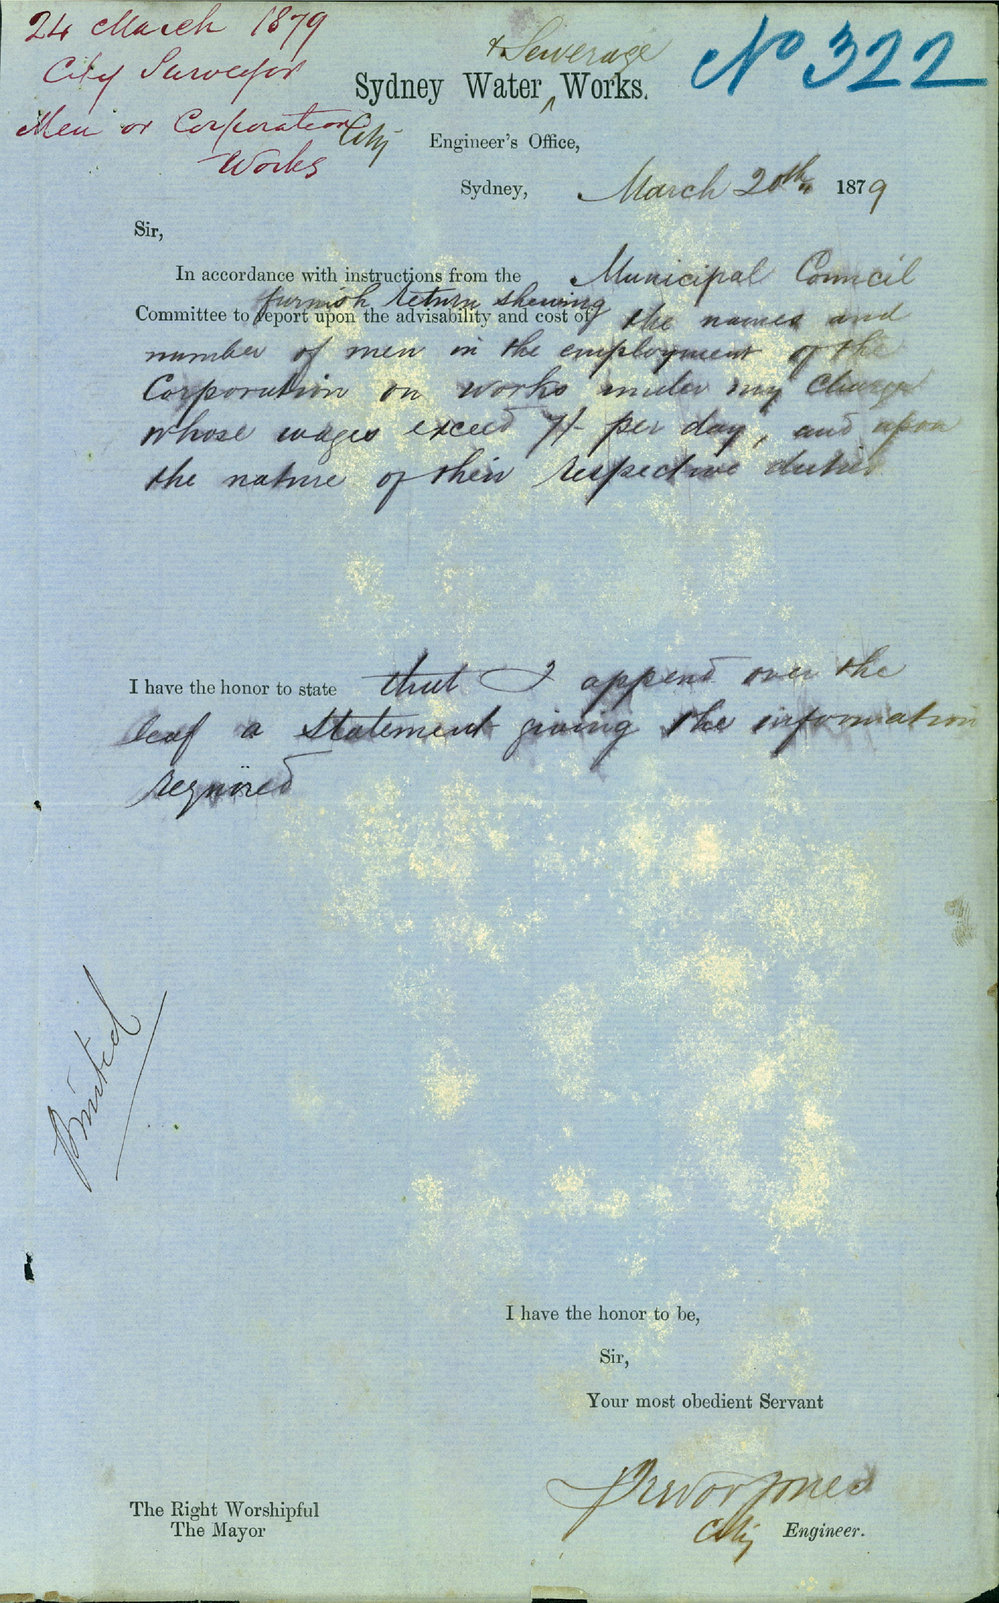 24 March 1879
City Surveyor
Men on Corporation
Works
No 322
& Sewerage
Sydney Water ^ Works.
City Engineer's Office,
Sydney, March 20th, 1879
Sir,
In accordance with instructions from the Municipal Council
furnish return shewing
Committee to report upon the advisability and cost of the names and
number of men in the employment of the
Corporation on works under my charge
whose wages exceed 7/- per day, and upon
the nature of their respective duties
I have the honor to state that I append over the
leaf a statement giving the information
required
Printed
I have the honor to be,
Sir,
Your most obedient Servant
Trevor Jones
City Engineer.
The Right Worshipful
The Mayor